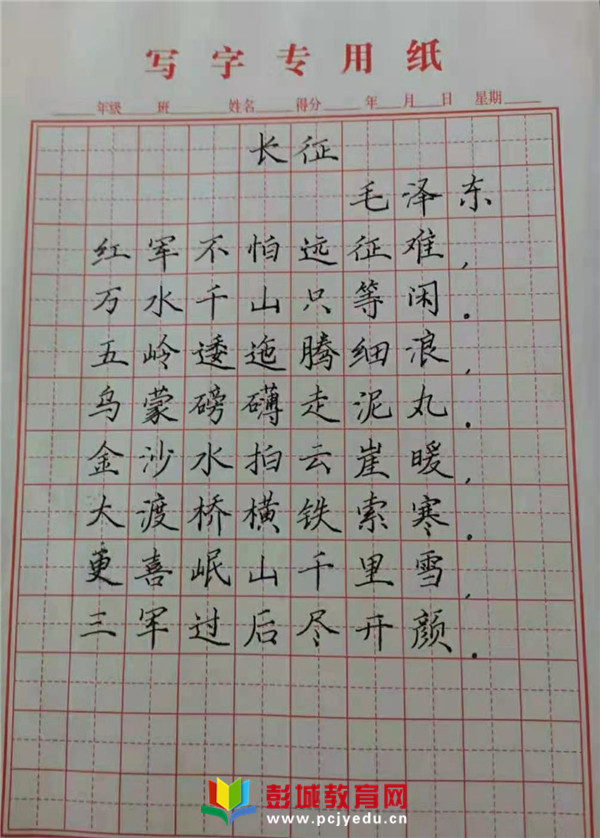 写字专用纸
年级 班 姓名 得分 年 月 日 星期
长征
毛泽东
红军不怕远征难，
万水千山只等闲。
五岭逶迤腾细浪，
乌蒙磅礴走泥丸。
金沙水拍云崖暖，
大渡桥横铁索寒。
更喜岷山千里雪，
三军过后尽开颜。
彭城教育网
www.pcjyedu.cn